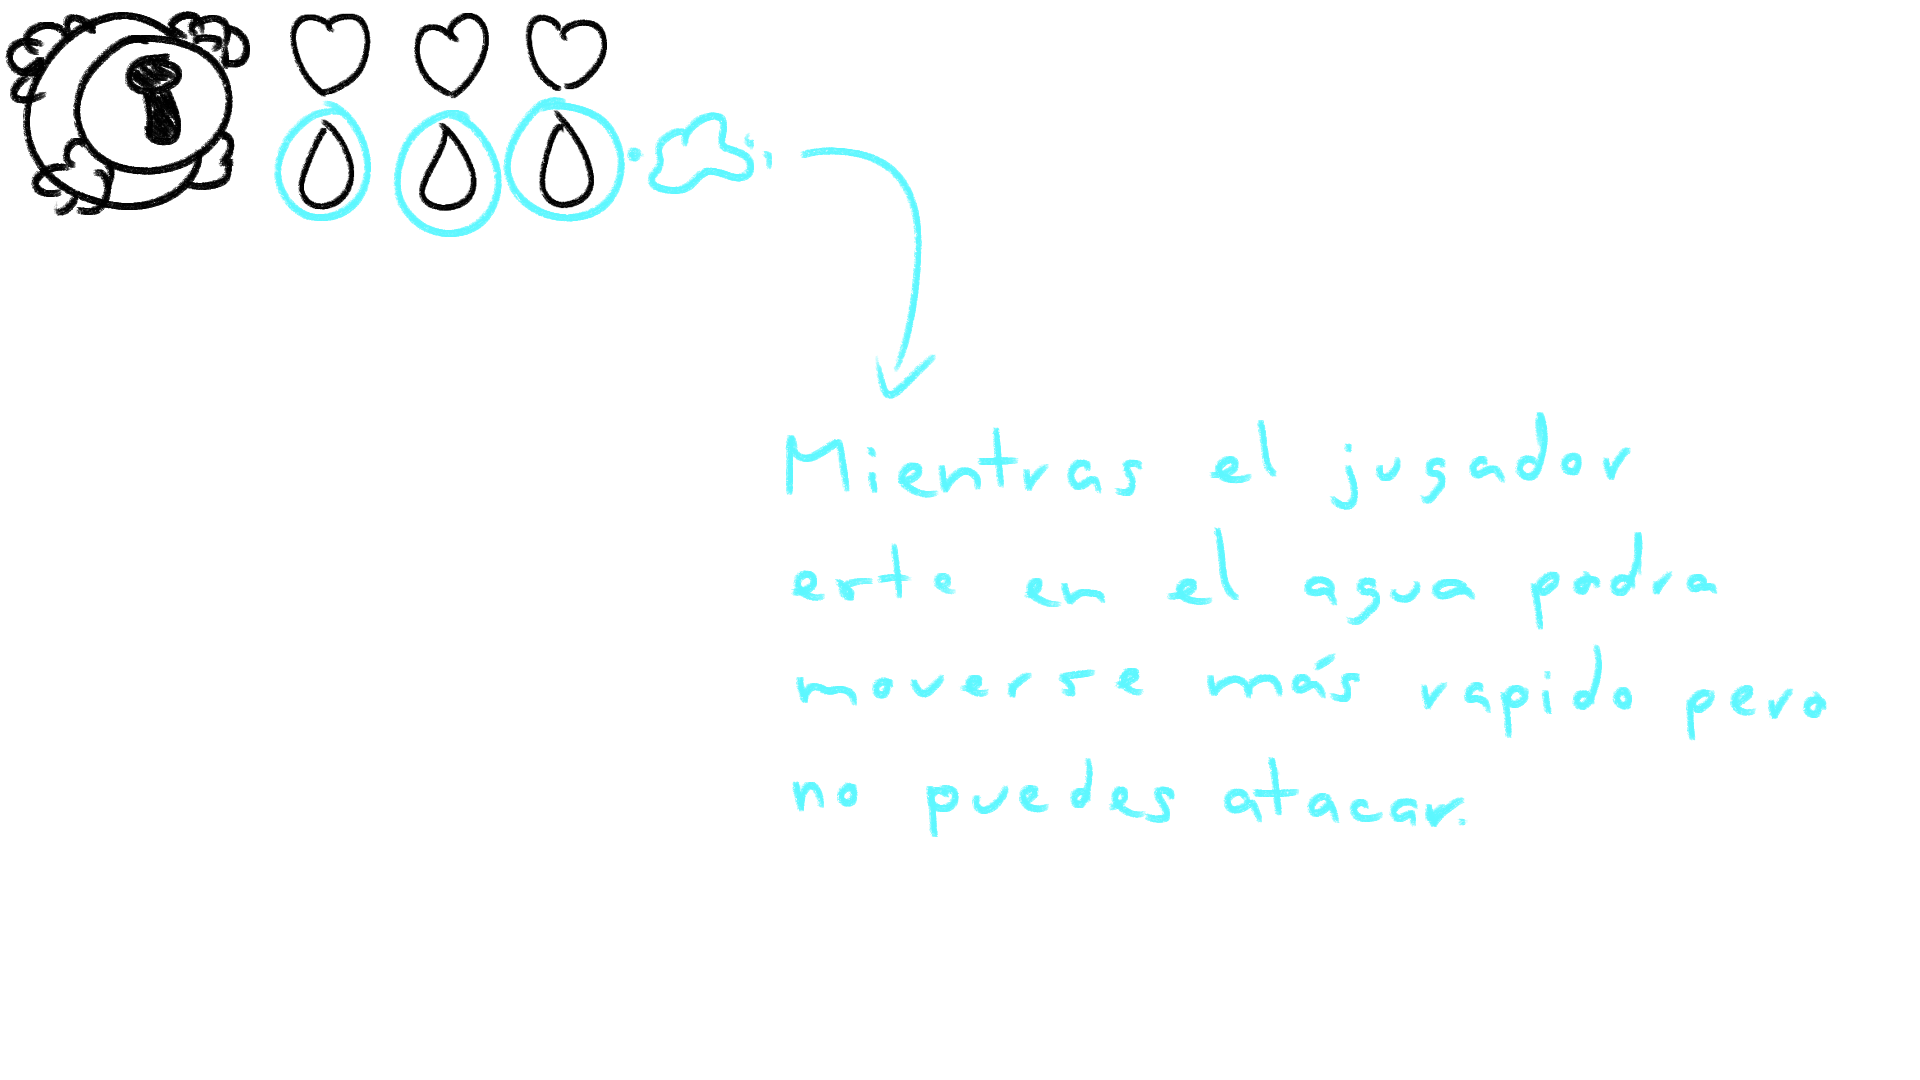 Mientras el jugador
este en el agua podra
moverse más rapido pero
no puedes atacar.